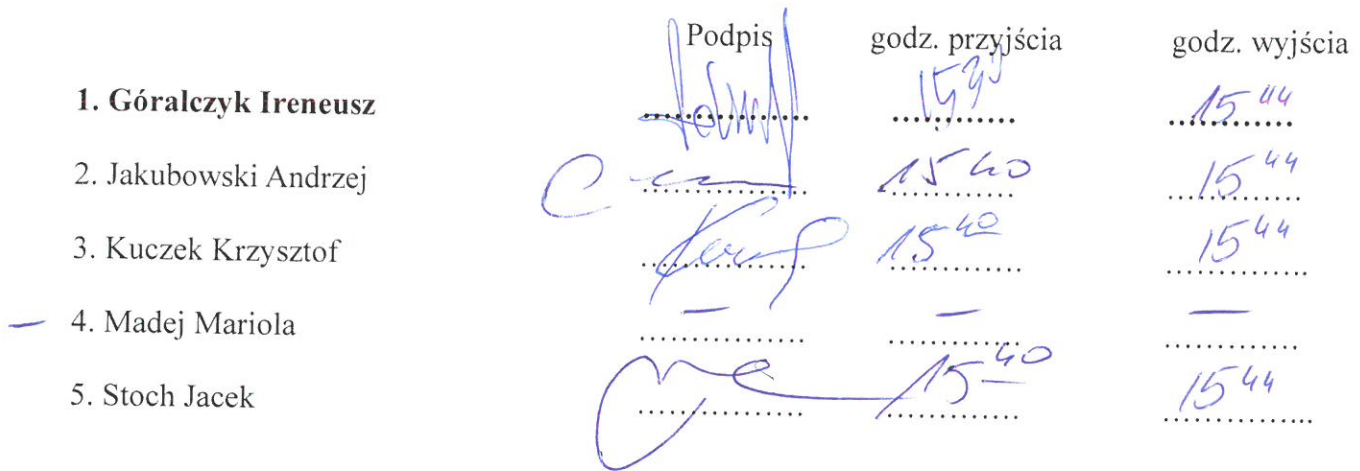 Podpis godz. przyjścia godz. wyjścia
1. Góralczyk Ireneusz 15 44
2. Jakubowski Andrzej 15 40 15 44
3. Kuczek Krzysztof 15 40 15 44
— 4. Madej Mariola — — —
5. Stoch Jacek 15 40 15 44